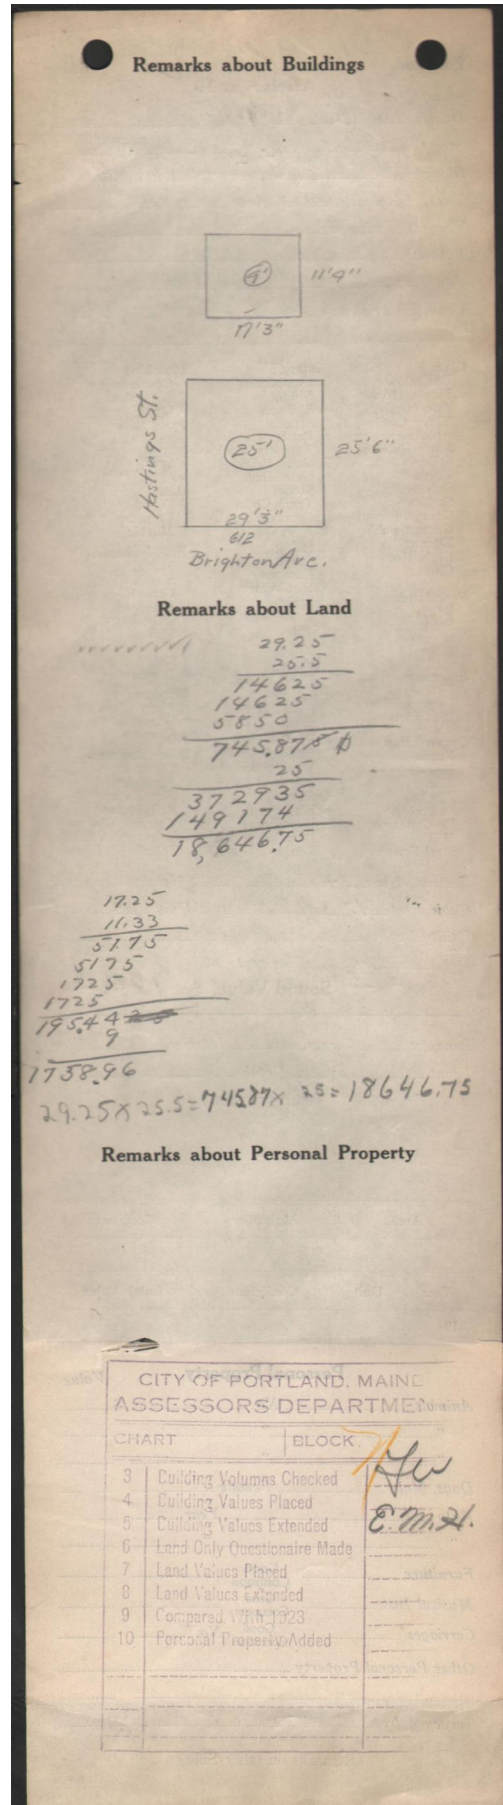 Remarks about Buildings
9'
11'4"
17'3"
Hastings St.
25'
25'6"
29'3"
612
Brighton Ave.
Remarks about Land
29.25
25.5
14625
14625
5850
745.875 0
25
372935
149174
18,646.75
17.25
11.33
51.75
5175
1725
1725
195.44
9
1758.96
29.25 x 25.5 = 745.87 x 25 = 18646.75
Remarks about Personal Property
CITY OF PORTLAND, MAINE
ASSESSORS DEPARTMENT
CHART BLOCK
3 Building Volumns Checked
4 Building Values Placed
5 Building Values Extended
E.M.H.
6 Land Only Questionaire Made
7 Land Values Placed
8 Land Values Extended
9 Compared With 1923
10 Personal Property Added